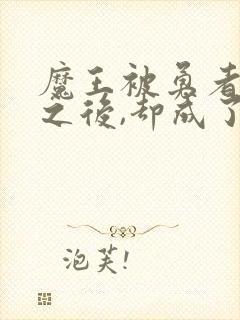 魔王被勇者
之後,却成了
泡芙!